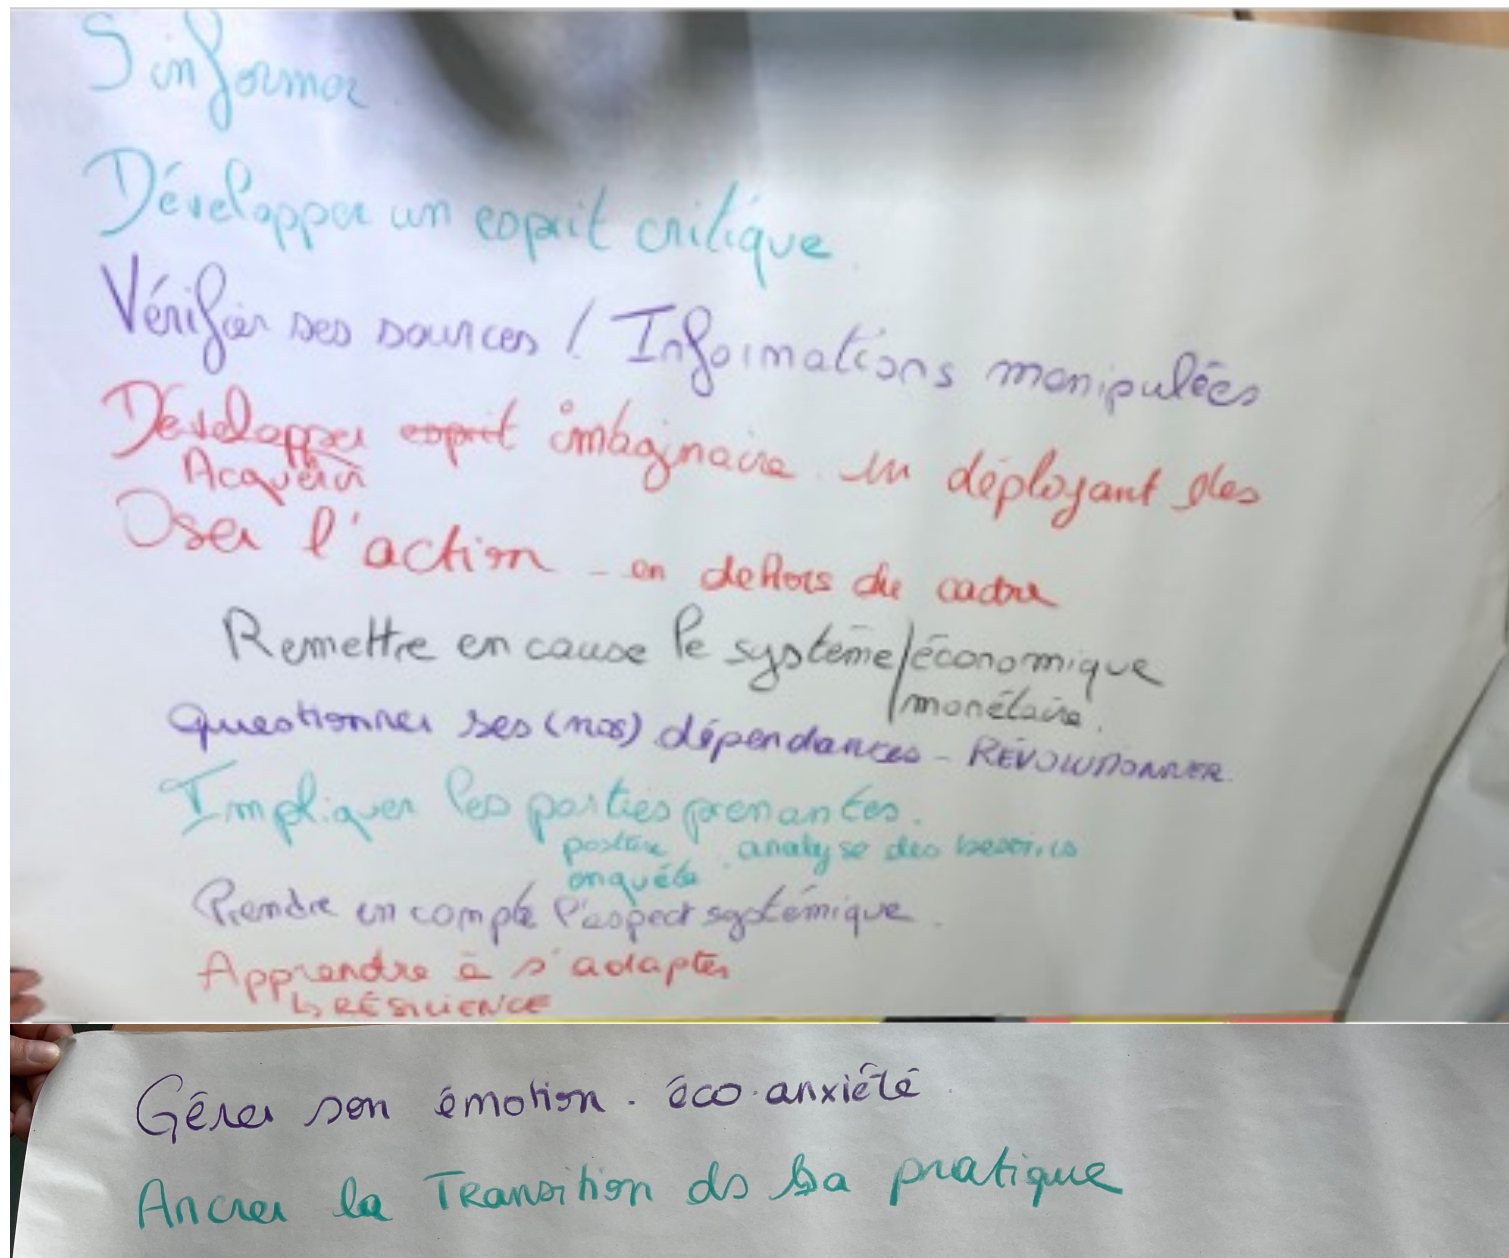 S'informer
Développer un esprit critique
Vérifier ses sources / Informations manipulées
Développer esprit imaginaire en déployant des
Acquérir
Oser l'action - en dehors du cadre
Remettre en cause le système/économique
/monétaire.
Questionner ses (nos) dépendances - RÉVOLUTIONNER
Impliquer les parties prenantes.
analyse des besoins
enquête
Prendre en compte l'aspect systémique.
Apprendre à s'adapter
↳ RÉSILIENCE
Gérer son émotion. éco.anxiété
Ancrer la Transition ds sa pratique